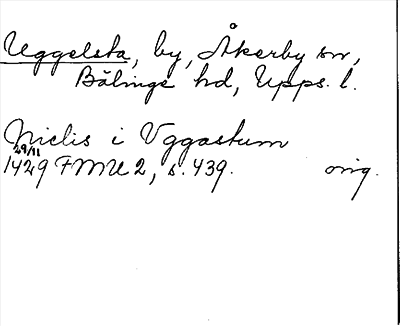 Uggelsta, by, Åkerby sn,
Bälinge hd, Upps. l.
Nielis i Vggastum
29/11
1429 FMU 2, s. 439. orig.